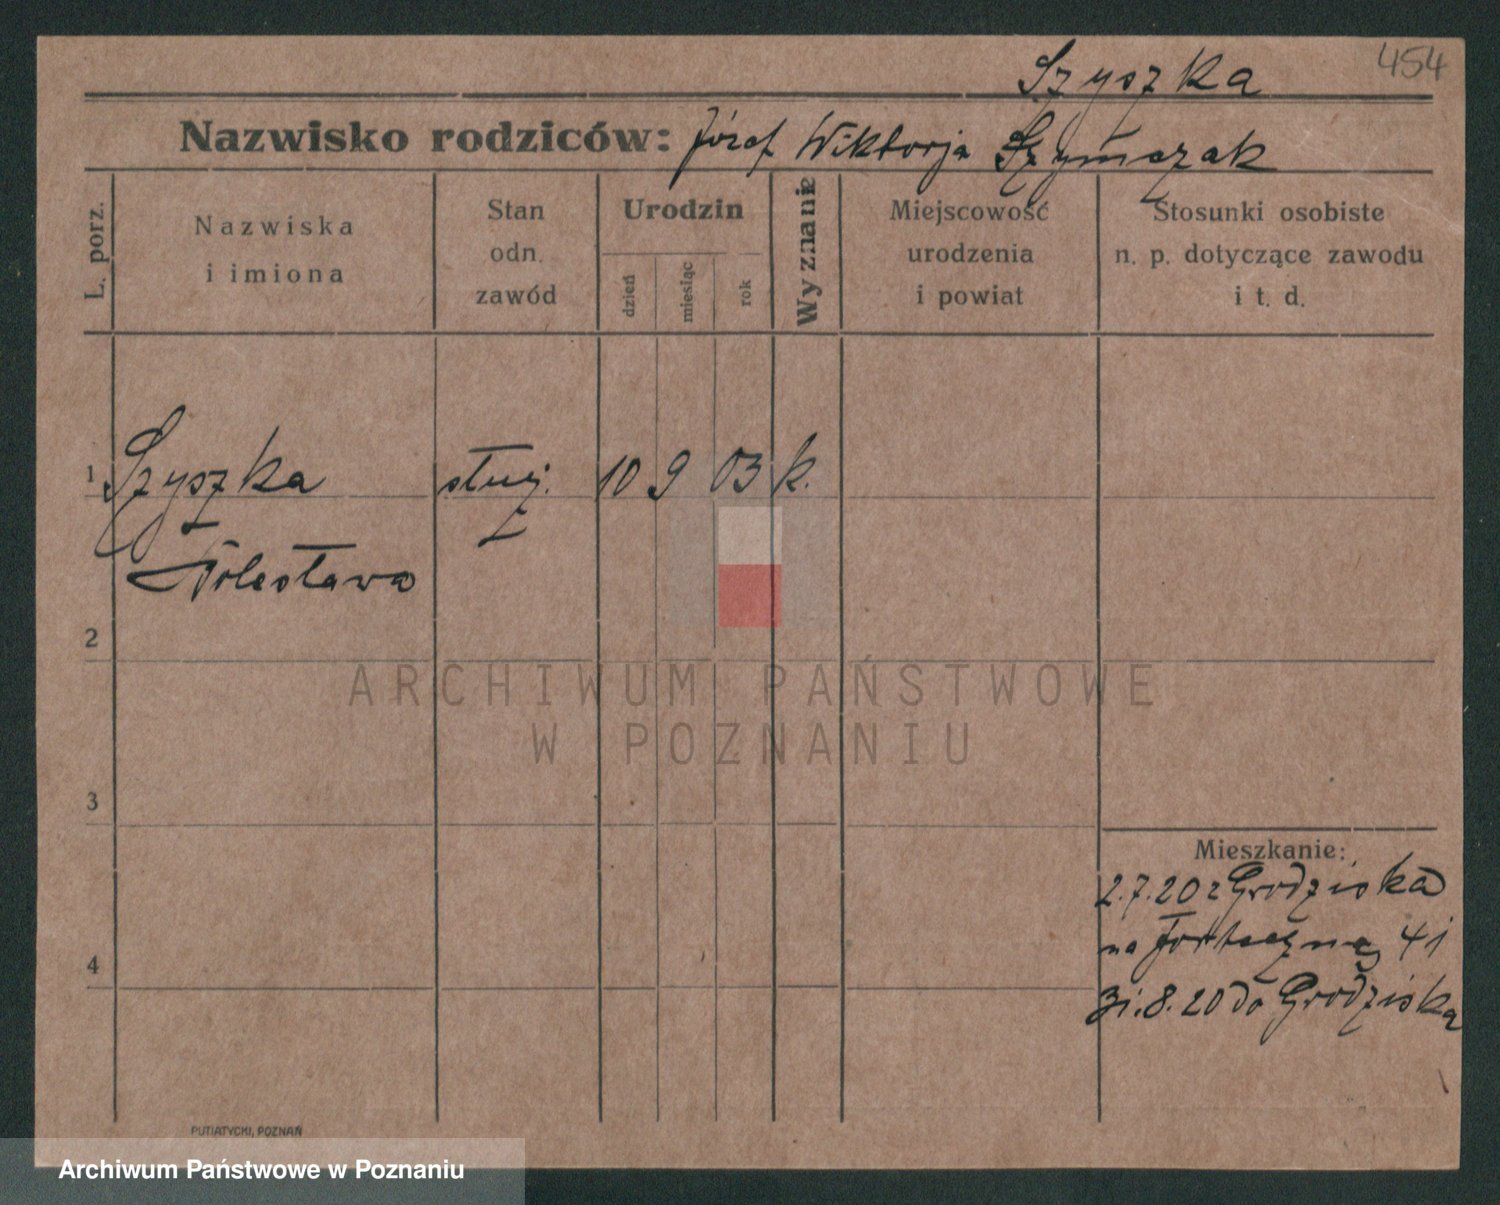 454
Szyszka
Nazwisko rodziców: Józef Wiktorja Szymczak
L. porz.
Nazwiska
i imiona
Stan
odn.
zawód
Urodzin
dzień
miesiąc
rok
Wyznanie
Miejscowość
urodzenia
i powiat
Stosunki osobiste
n. p. dotyczące zawodu
i t. d.
1 Szyszka służ. 10 9 03 k.
Bolesława
2
3
4
Mieszkanie:
2.7.20 z Grodziska
na Forteczną 41
31.8.20 do Grodziska
PUTIATYCKI, POZNAŃ
ARCHIWUM PAŃSTWOWE
W POZNANIU
Archiwum Państwowe w Poznaniu